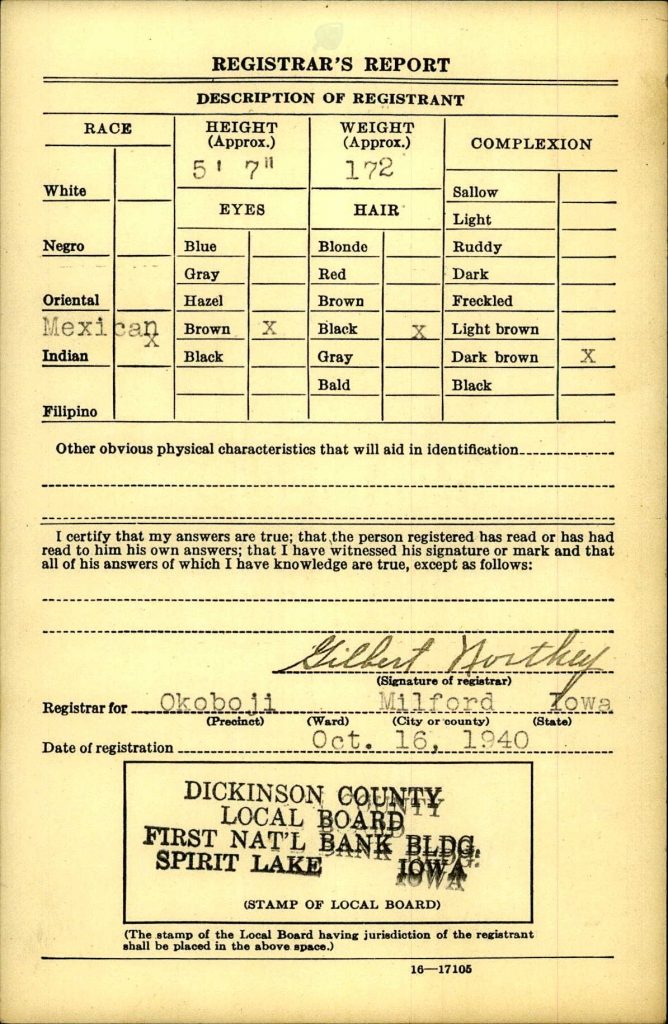 REGISTRAR'S REPORT
DESCRIPTION OF REGISTRANT
RACE
HEIGHT
(Approx.)
WEIGHT
(Approx.)
COMPLEXION
5' 7"
172
White
EYES
HAIR
Sallow
Light
Negro
Blue
Blonde
Ruddy
Gray
Red
Dark
Oriental
Hazel
Brown
Freckled
Mexican
x
Brown x
Black x
Light brown
Indian
Black
Gray
Dark brown x
Bald
Black
Filipino
Other obvious physical characteristics that will aid in identification
I certify that my answers are true; that the person registered has read or has had
read to him his own answers; that I have witnessed his signature or mark and that
all of his answers of which I have knowledge are true, except as follows:
Gilbert Northey
(Signature of registrar)
Registrar for Okoboji Milford Iowa
(Precinct) (Ward) (City or county) (State)
Date of registration Oct. 16, 1940
DICKINSON COUNTY
LOCAL BOARD
FIRST NAT'L BANK BLDG.
SPIRIT LAKE IOWA
(STAMP OF LOCAL BOARD)
(The stamp of the Local Board having jurisdiction of the registrant
shall be placed in the above space.)
16—17105